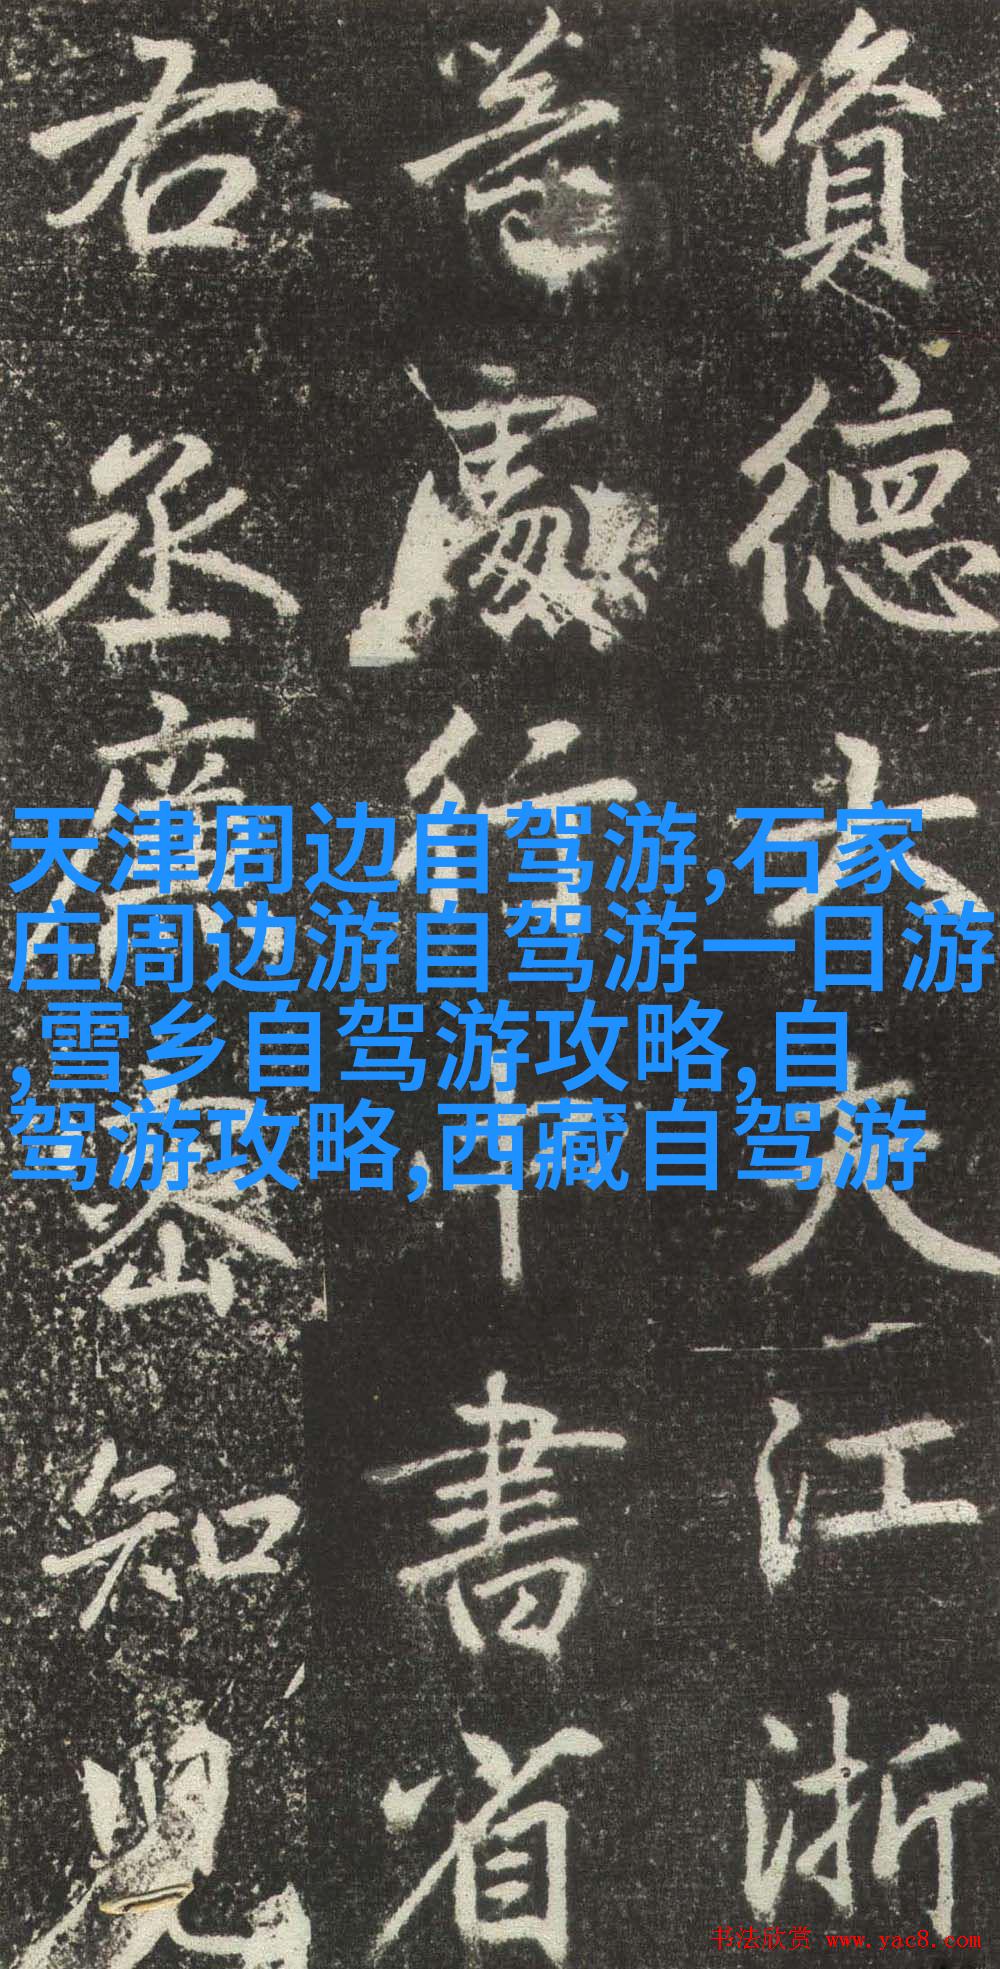 資德大夫江浙
行中書省
右丞廉密知兒
天津周边自驾游,石家
庄周边游自驾游一日游
,雪乡自驾游攻略,自
驾游攻略,西藏自驾游
书法欣赏 www.yac8.com